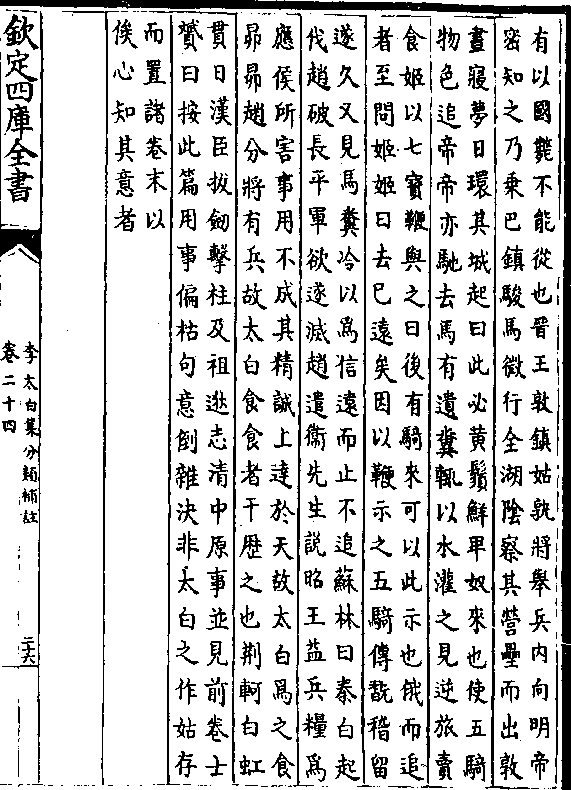 有以國甍不能從也晉王敦鎮姑孰將舉兵内向明帝
宻知之乃乗巴鎮駿馬微行至湖隂察其營壘而出敦
晝寢夢日環其城起曰此必黄鬚鮮卑奴來也使五騎
物色追帝帝亦馳去馬有遺糞輒以水灌之見逆旅賣
食姬以七寳鞭與之曰後有騎來可以此示也俄而追
者至問姬姬曰去已逺矣因以鞭示之五騎傳翫稽留
遂久又見馬糞冷以爲信逺而止不追蘇林曰秦白起
伐趙破長平軍欲遂滅趙遣衛先生説昭王益兵糧爲
應侯所害事用不成其精誠上達於天故太白爲之食
昴昴趙分將有兵故太白食食者干歴之也荆軻白虹
貫日漢臣拔劒擊柱及祖逖志清中原事並見前卷士
贇曰按此篇用事偏枯句意倒雜決非太白之作姑存
而置諸卷末以
俟心知其意者
欽定四庫全書
李太白集分類補註
卷二十四
二十六